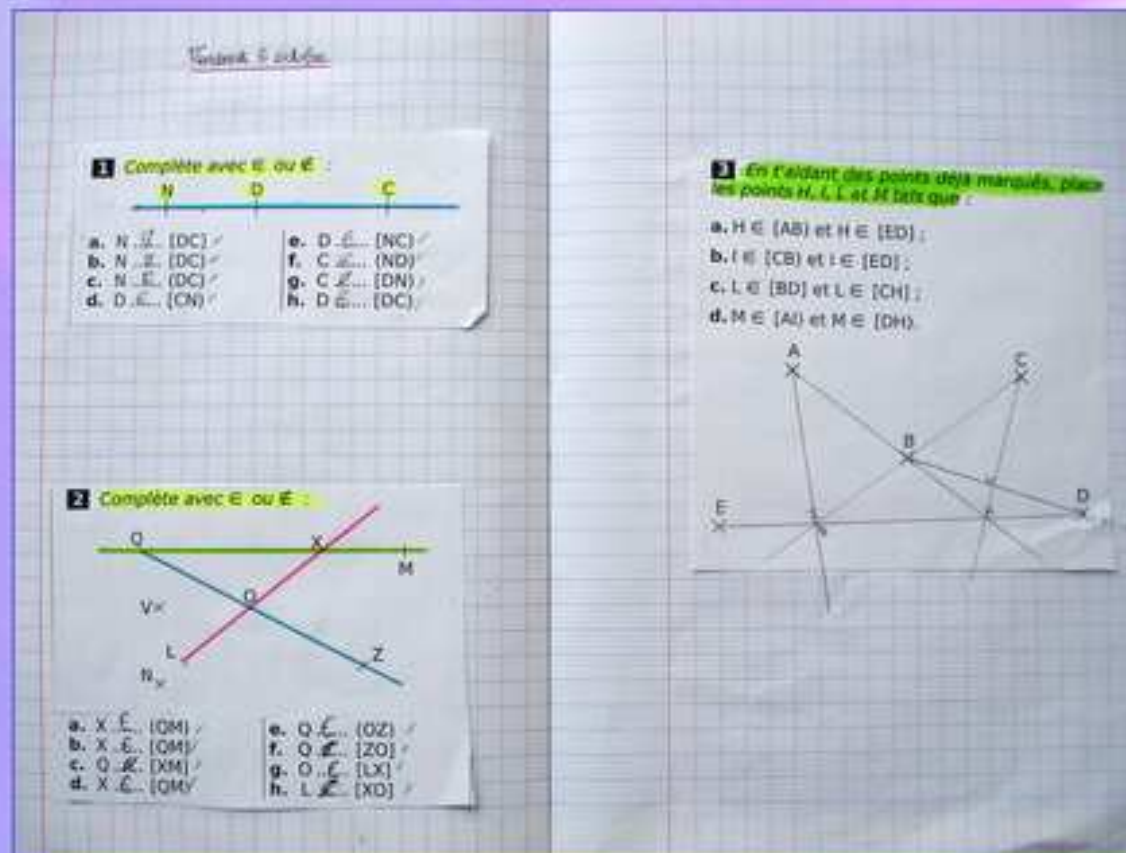 1 Complète avec ∈ ou ∉ :
N D C
a. N ∉ [DC]
b. N ∉ [DC)
c. N ∈ (DC)
d. D ∈ [CN)
e. D ∈ [NC)
f. C ∈ (ND)
g. C ∉ [DN)
h. D ∈ [DC)
2 Complète avec ∈ ou ∉ :
Q X
M
V
O
L Z
N
a. X ∈ (QM)
b. X ∈ [QM]
c. Q ∉ [XM]
d. X ∈ [QM)
e. Q ∈ (OZ)
f. Q ∉ [ZO]
g. O ∈ [LX]
h. L ∉ [XO]
3 En t'aidant des points déjà marqués, place
les points H, I, L et M tels que :
a. H ∈ [AB) et H ∈ [ED] ;
b. I ∈ [CB) et I ∈ [ED] ;
c. L ∈ [BD] et L ∈ [CH] ;
d. M ∈ [AI) et M ∈ [DH).
A C
B
E D